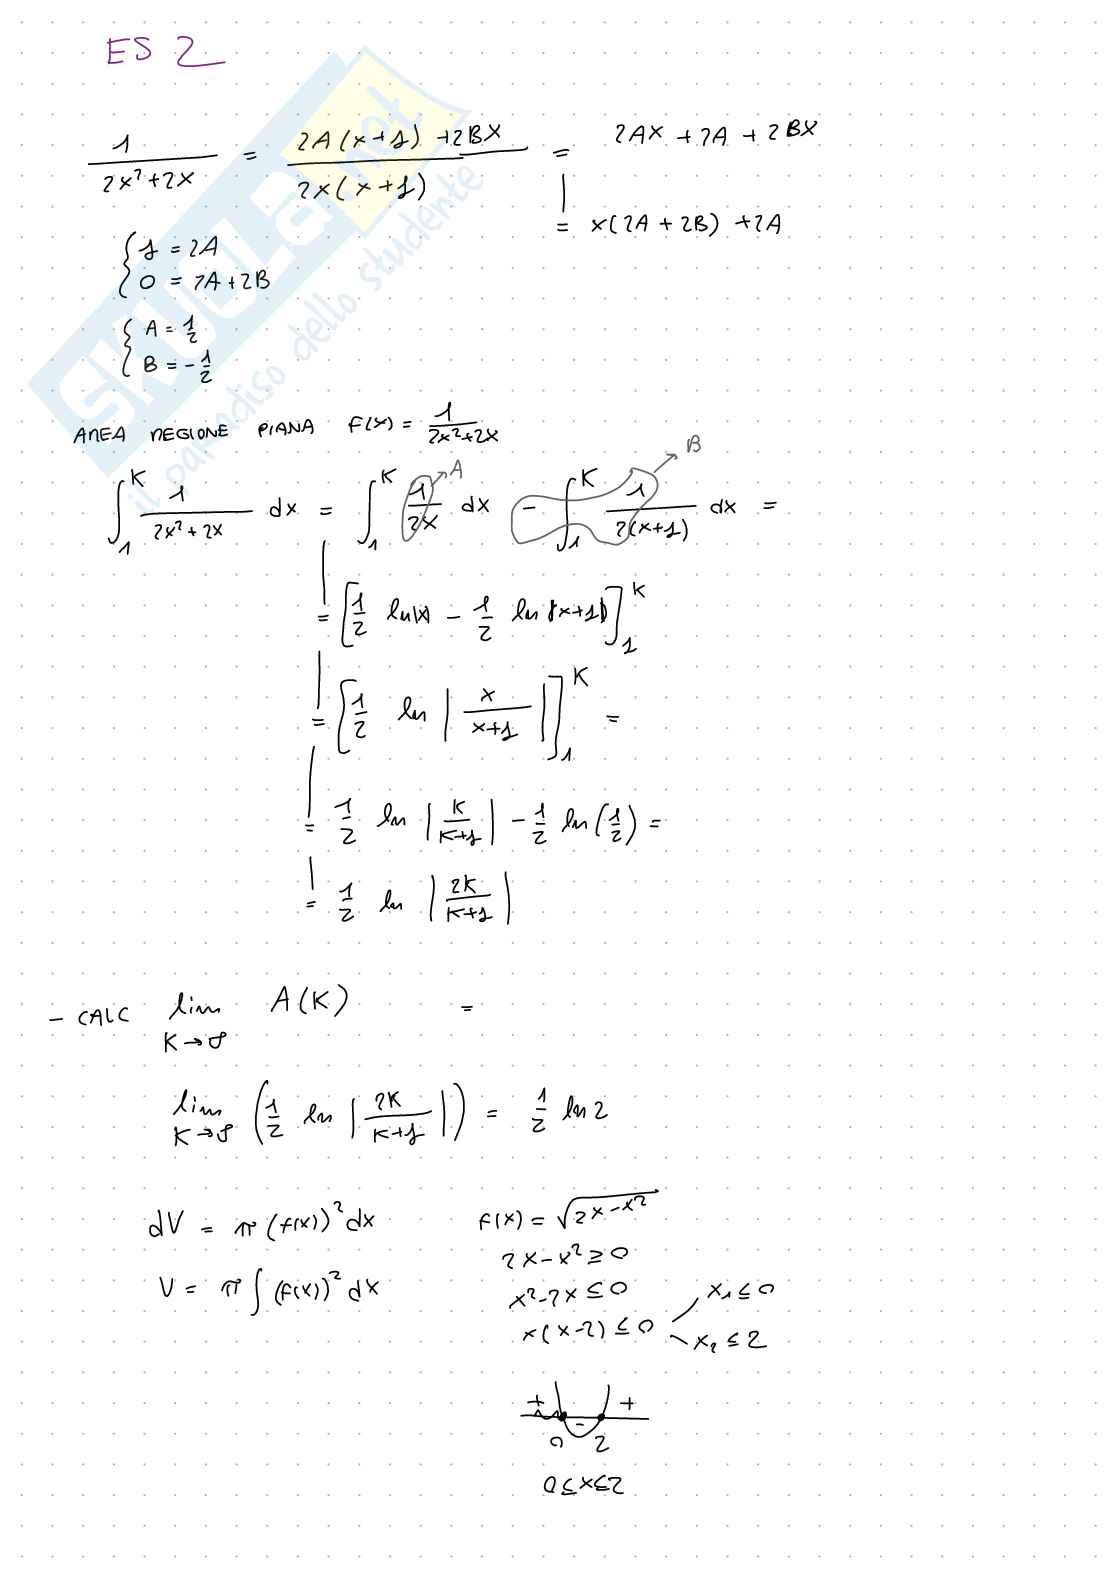 ES 2
1/(2x²+2x) = (2A(x+1) + 2Bx)/(2x(x+1)) = 2Ax + 2A + 2Bx
= x(2A + 2B) + 2A
{ 1 = 2A
0 = 2A + 2B
{ A = 1/2
B = -1/2
AREA REGIONE PIANA f(x) = 1/(2x²+2x)
∫₁ᴷ 1/(2x²+2x) dx = ∫₁ᴷ 1/(2x) dx - ∫₁ᴷ 1/(2(x+1)) dx =
A
B
= [1/2 ln|x| - 1/2 ln|x+1|]₁ᴷ
= [1/2 ln |x/(x+1)|]₁ᴷ =
= 1/2 ln |K/(K+1)| - 1/2 ln(1/2) =
= 1/2 ln |2K/(K+1)|
- CALC lim A(K) =
K→∞
lim (1/2 ln |2K/(K+1)|) = 1/2 ln 2
K→∞
dV = π (f(x))² dx
V = π ∫ (f(x))² dx
f(x) = √(2x-x²)
2x-x² ≥ 0
x²-2x ≤ 0
x(x-2) ≤ 0
x₁ ≤ 0
x₂ ≤ 2
+ - +
0 2
0≤x≤2
SKUOLA.net
il paradiso dello studente